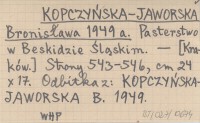 KOPCZYŃSKA-JAWORSKA
Bronisława 1949 a. Pasterstwo
w Beskidzie Śląskim. — [Kra-
ków.] Strony 543-546, cm 24
x 17. Odbitka z: KOPCZYŃSKA-
JAWORSKA B. 1949.
WHP